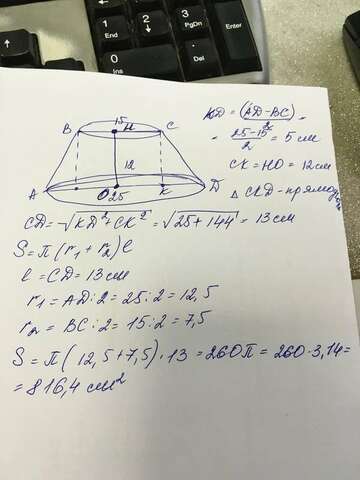 1
End
2
3
PgDn
Enter
0
Ins
.
Del
15
B H C
12
A O 25 K D
KD = (AD-BC)/2 =
= 25-15/2 = 5 см
CK = HO = 12 см
△ CKD - прямоуг
CD = √KD² + CK² = √25 + 144 = 13 см
S = π (r₁ + r₂) ℓ
ℓ = CD = 13 см
r₁ = AD : 2 = 25 : 2 = 12,5
r₂ = BC : 2 = 15 : 2 = 7,5
S = π ( 12,5 + 7,5) · 13 = 260π = 260 · 3,14 =
= 816,4 см²